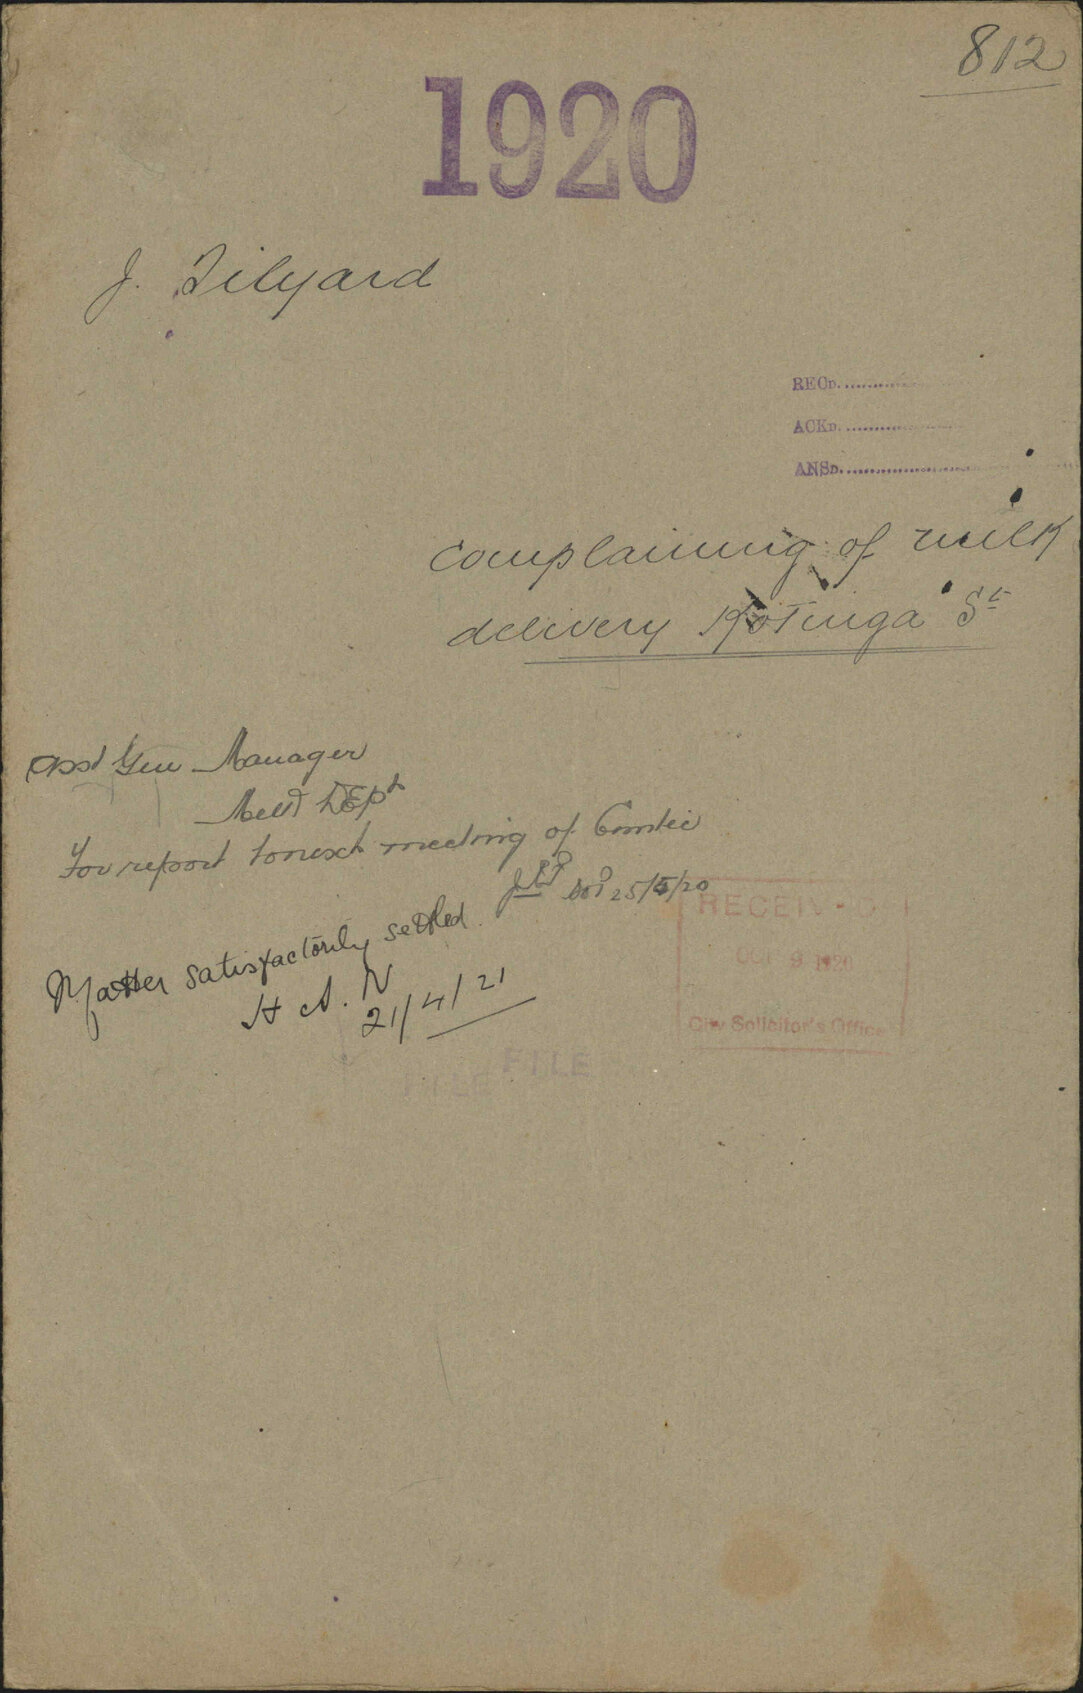 812
1920
J. Tilyard
RECD.
ACKD.
ANSD.
complaining of milk
delivery Kotinga St
Asst Gen Manager
Milk Dept
For report to next meeting of Comtee
25/5/20
Matter satisfactorily settled
H A. N
21/4/21
RECEIVED
OCT 9 1920
City Solicitor's Office
FILE
FILE